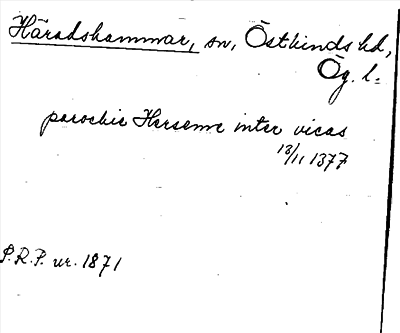 Häradshammar, sn, Östkinds hd,
Ög. l:
parochie Hersamr inter vicas
13/11 1377
P.R.P. nr. 1871